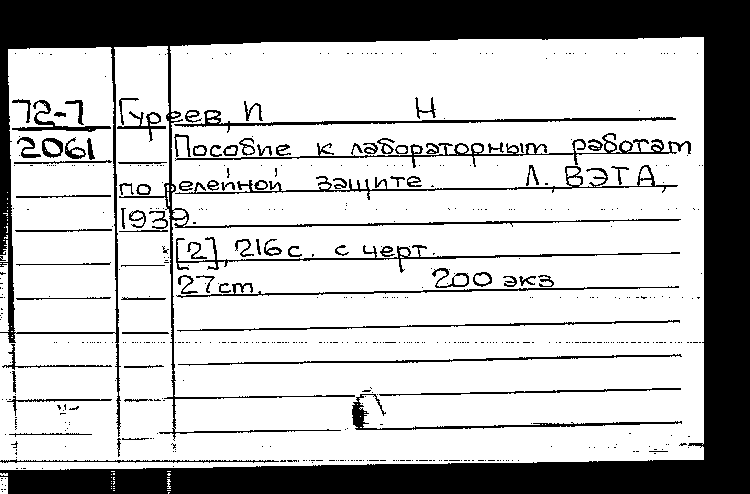 72-7 Гуреев, И Н
2061 Пособие к лабораторным работам
по релейной защите. Л., ВЭТА,
1939.
[2], 216 с. с черт.
27 cm. 200 экз